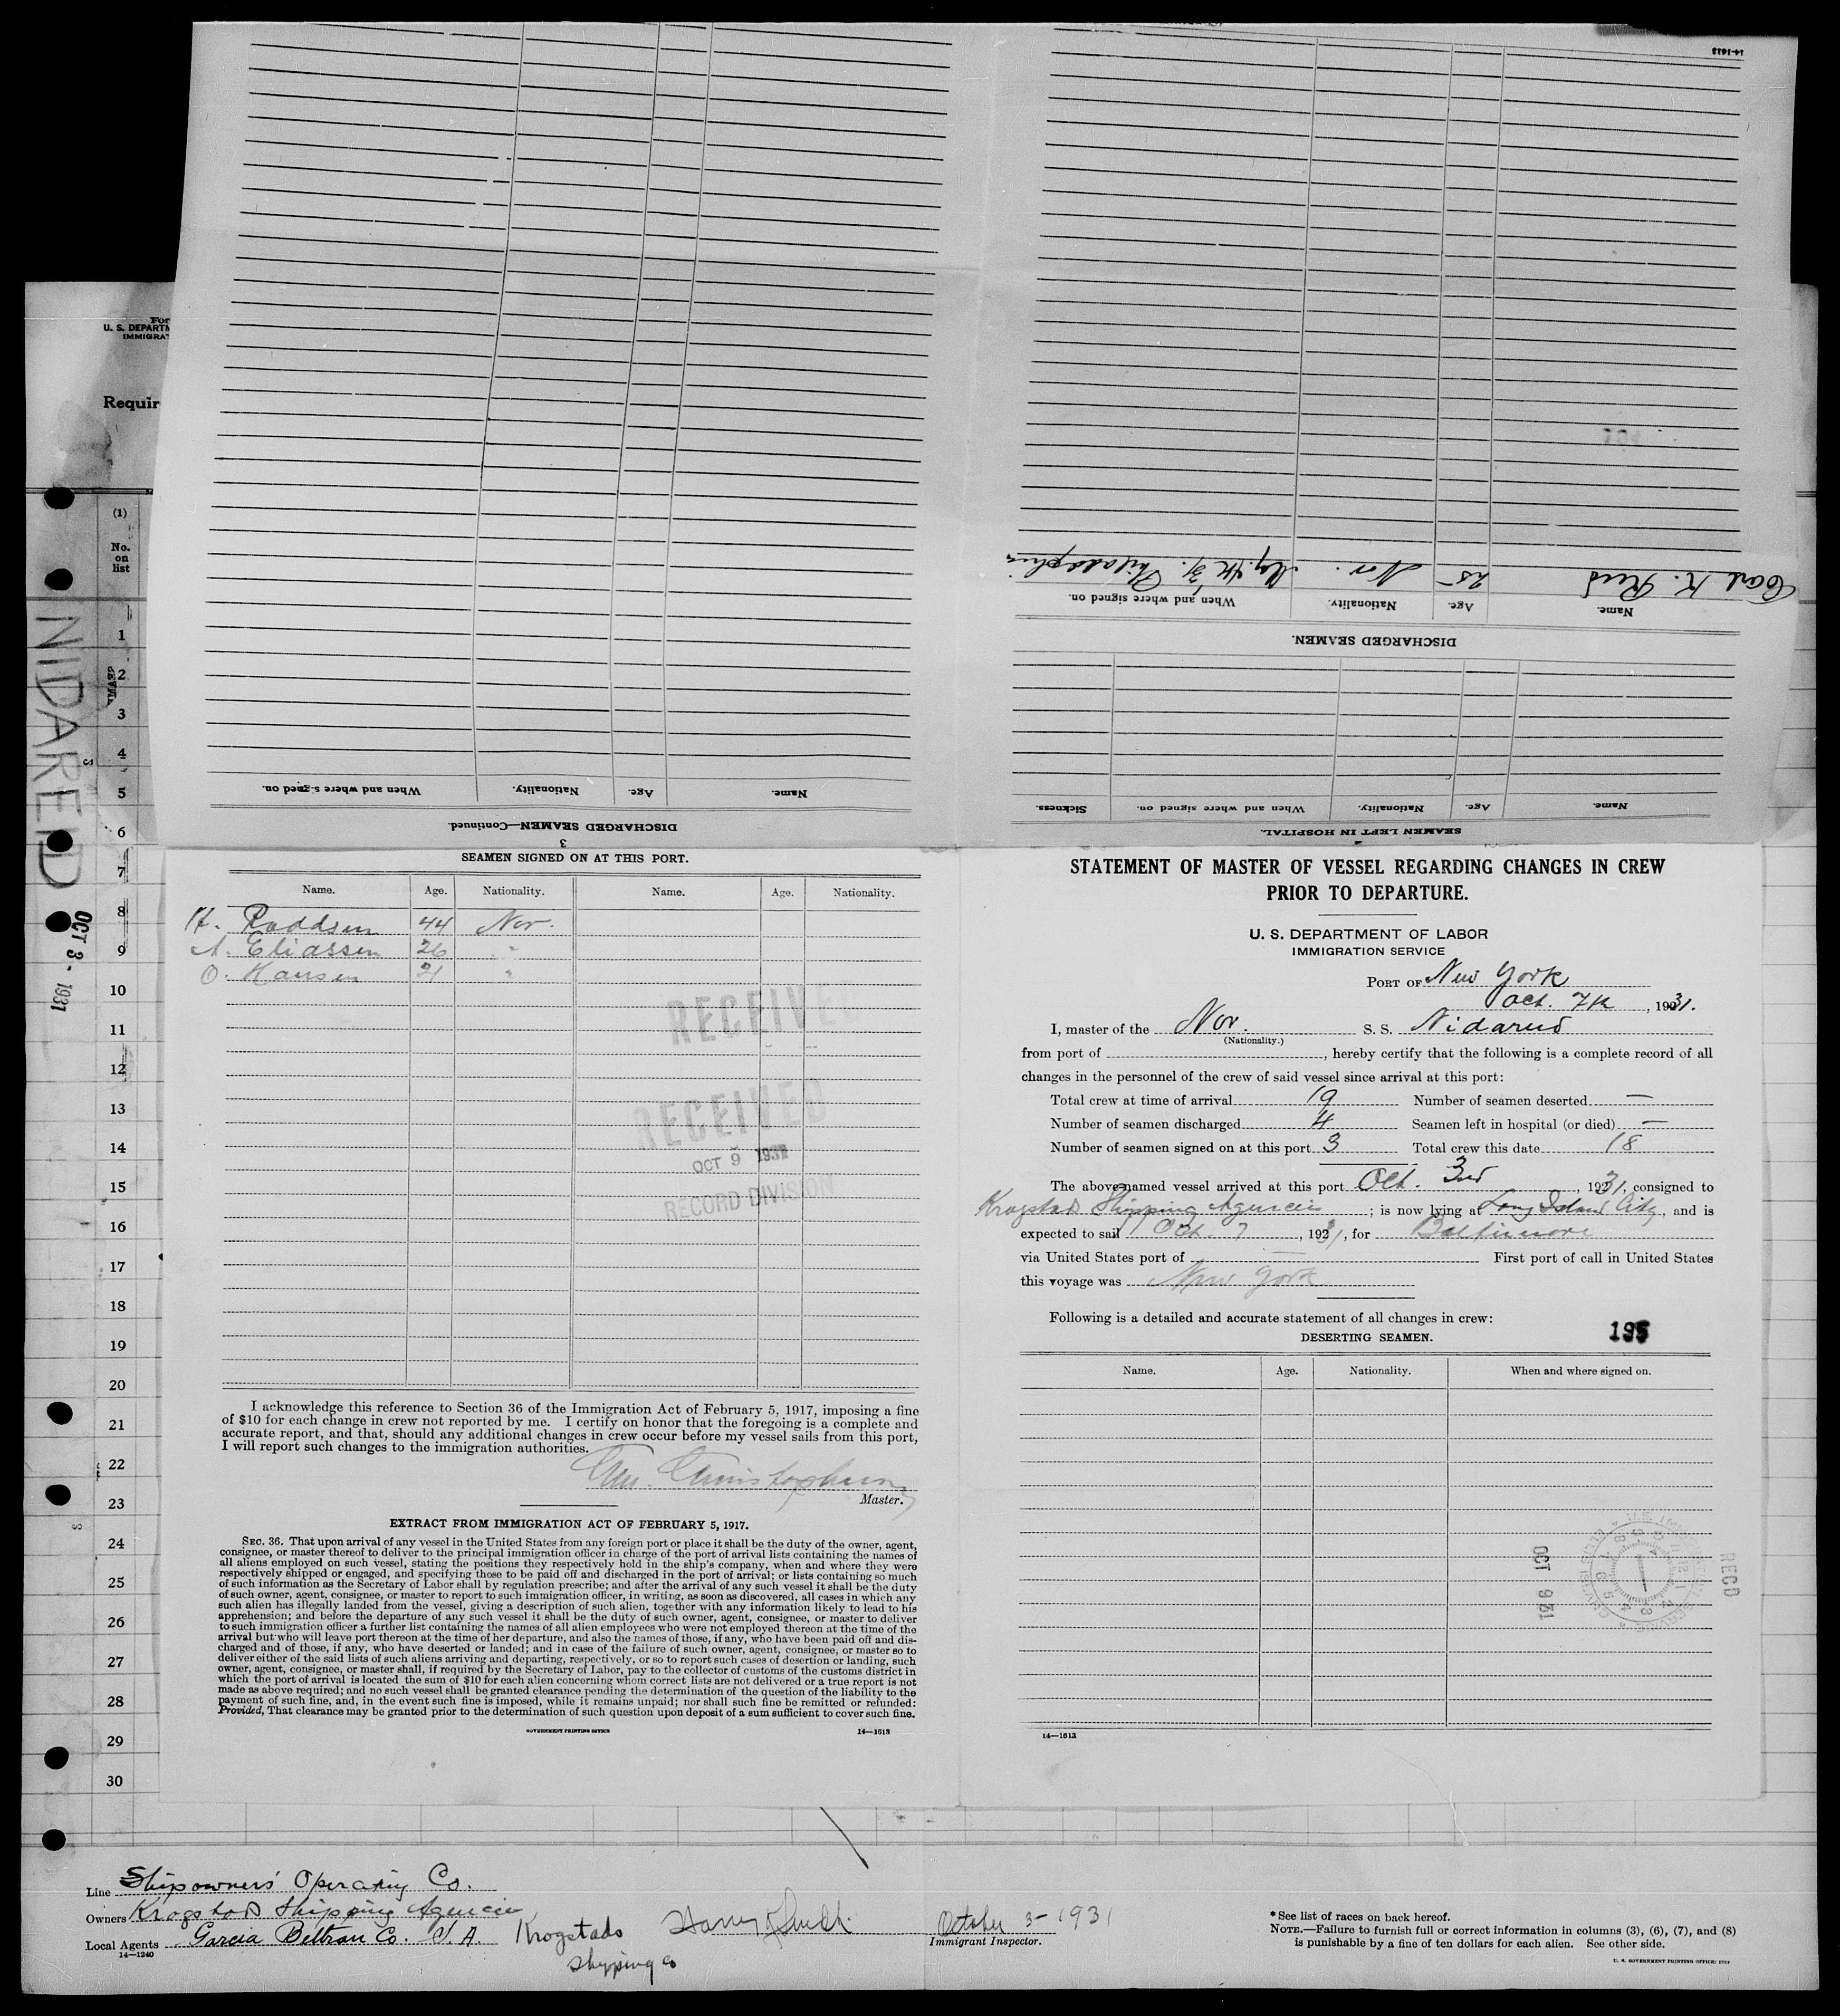 14-1613
For
U. S. DEPARTM
IMMIGRAT
Requir
(1)
No.
on
list
1
2
3
4
5
6
7
8
9
10
11
12
13
14
15
16
17
18
19
20
21
22
23
24
25
26
27
28
29
30
NIDAREID
OCT 3 - 1931
SEAMEN LEFT IN HOSPITAL.
Name. Age. Nationality. When and where signed on. Sickness.
DISCHARGED SEAMEN.
Name. Age. Nationality. When and where signed on.
Carl K. 25 Nor. Philadelphia
3
DISCHARGED SEAMEN—Continued.
Name. Age. Nationality. When and where signed on.
SEAMEN SIGNED ON AT THIS PORT.
Name. Age. Nationality. Name. Age. Nationality.
H. Roddsen 44 Nor.
A. Eliassen 26 "
O. Hansen 21 "
RECEIVED
RECEIVED
OCT 9 1931
RECORD DIVISION
I acknowledge this reference to Section 36 of the Immigration Act of February 5, 1917, imposing a fine
of $10 for each change in crew not reported by me. I certify on honor that the foregoing is a complete and
accurate report, and that, should any additional changes in crew occur before my vessel sails from this port,
I will report such changes to the immigration authorities.
Christophersen
Master.
EXTRACT FROM IMMIGRATION ACT OF FEBRUARY 5, 1917.
SEC. 36. That upon arrival of any vessel in the United States from any foreign port or place it shall be the duty of the owner, agent,
consignee, or master thereof to deliver to the principal immigration officer in charge of the port of arrival lists containing the names of
all aliens employed on such vessel, stating the positions they respectively hold in the ship's company, when and where they were
respectively shipped or engaged, and specifying those to be paid off and discharged in the port of arrival; or lists containing so much
of such information as the Secretary of Labor shall by regulation prescribe; and after the arrival of any such vessel it shall be the duty
of such owner, agent, consignee, or master to report to such immigration officer, in writing, as soon as discovered, all cases in which any
such alien has illegally landed from the vessel, giving a description of such alien, together with any information likely to lead to his
apprehension; and before the departure of any such vessel it shall be the duty of such owner, agent, consignee, or master to deliver
to such immigration officer a further list containing the names of all alien employees who were not employed thereon at the time of the
arrival but who will leave port thereon at the time of her departure, and also the names of those, if any, who have been paid off and dis-
charged and of those, if any, who have deserted or landed; and in case of the failure of such owner, agent, consignee, or master so to
deliver either of the said lists of such aliens arriving and departing, respectively, or so to report such cases of desertion or landing, such
owner, agent, consignee, or master shall, if required by the Secretary of Labor, pay to the collector of customs of the customs district in
which the port of arrival is located the sum of $10 for each alien concerning whom correct lists are not delivered or a true report is not
made as above required; and no such vessel shall be granted clearance pending the determination of the question of the liability to the
payment of such fine, and, in the event such fine is imposed, while it remains unpaid; nor shall such fine be remitted or refunded:
Provided, That clearance may be granted prior to the determination of such question upon deposit of a sum sufficient to cover such fine.
GOVERNMENT PRINTING OFFICE 14—1613
STATEMENT OF MASTER OF VESSEL REGARDING CHANGES IN CREW
PRIOR TO DEPARTURE.
U. S. DEPARTMENT OF LABOR
IMMIGRATION SERVICE
PORT OF New York
Oct. 7th, 1931.
I, master of the Nor. S. S. Nidareid
(Nationality.)
from port of , hereby certify that the following is a complete record of all
changes in the personnel of the crew of said vessel since arrival at this port:
Total crew at time of arrival 19 Number of seamen deserted —
Number of seamen discharged 4 Seamen left in hospital (or died) —
Number of seamen signed on at this port 3 Total crew this date 18
The above-named vessel arrived at this port Oct. 3rd, 1931, consigned to
Krogstad Shipping Agencies; is now lying at Long Island City, and is
expected to sail Oct. 7, 1931, for Baltimore
via United States port of — First port of call in United States
this voyage was New York
Following is a detailed and accurate statement of all changes in crew:
DESERTING SEAMEN. 195
Name. Age. Nationality. When and where signed on.
OCT 9 1931
RECD
14—1613
Line Shipowners' Operating Co.
Owners Krogstad Shipping Agencies
Local Agents Garcia Beltran Co. S. A. Krogstads
Shipping Co
October 3- 1931
Immigrant Inspector.
14—1240
* See list of races on back hereof.
NOTE.—Failure to furnish full or correct information in columns (3), (6), (7), and (8)
is punishable by a fine of ten dollars for each alien. See other side.